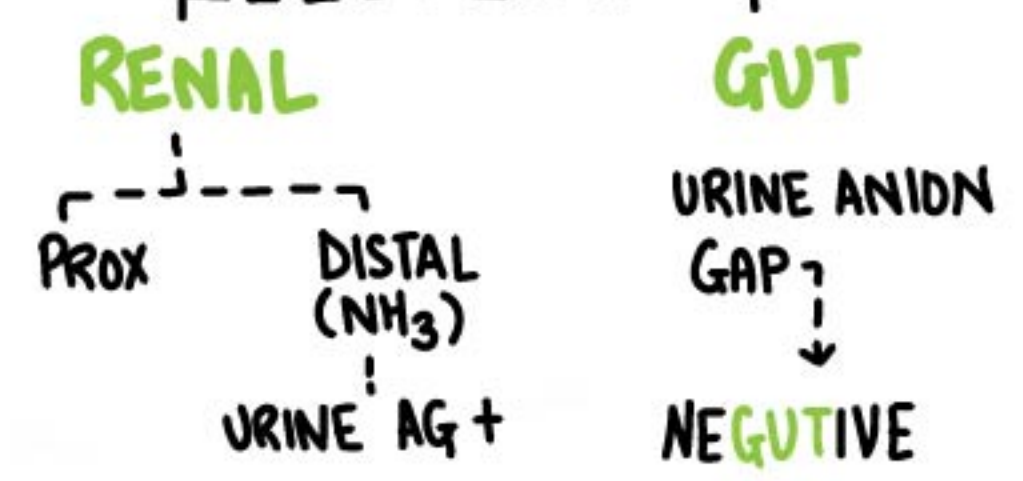 RENAL
GUT
PROX
DISTAL
(NH3)
URINE AG +
URINE ANION
GAP
NEGUTIVE